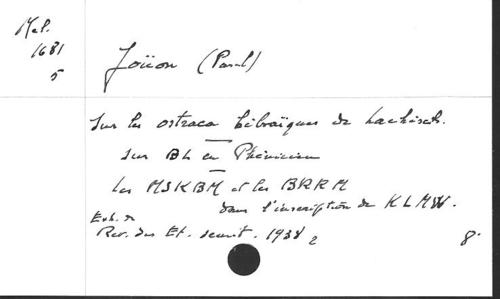 Mel.
1681
5
Joüon (Paul)
Sur les ostraca hébraïques de Lachisch.
Sur BL en Phénicien
Les MSKBM et les BRRM
dans l'inscription de KLMW.
Ext. de
Rev. des Et. semit. 1938 2
8°